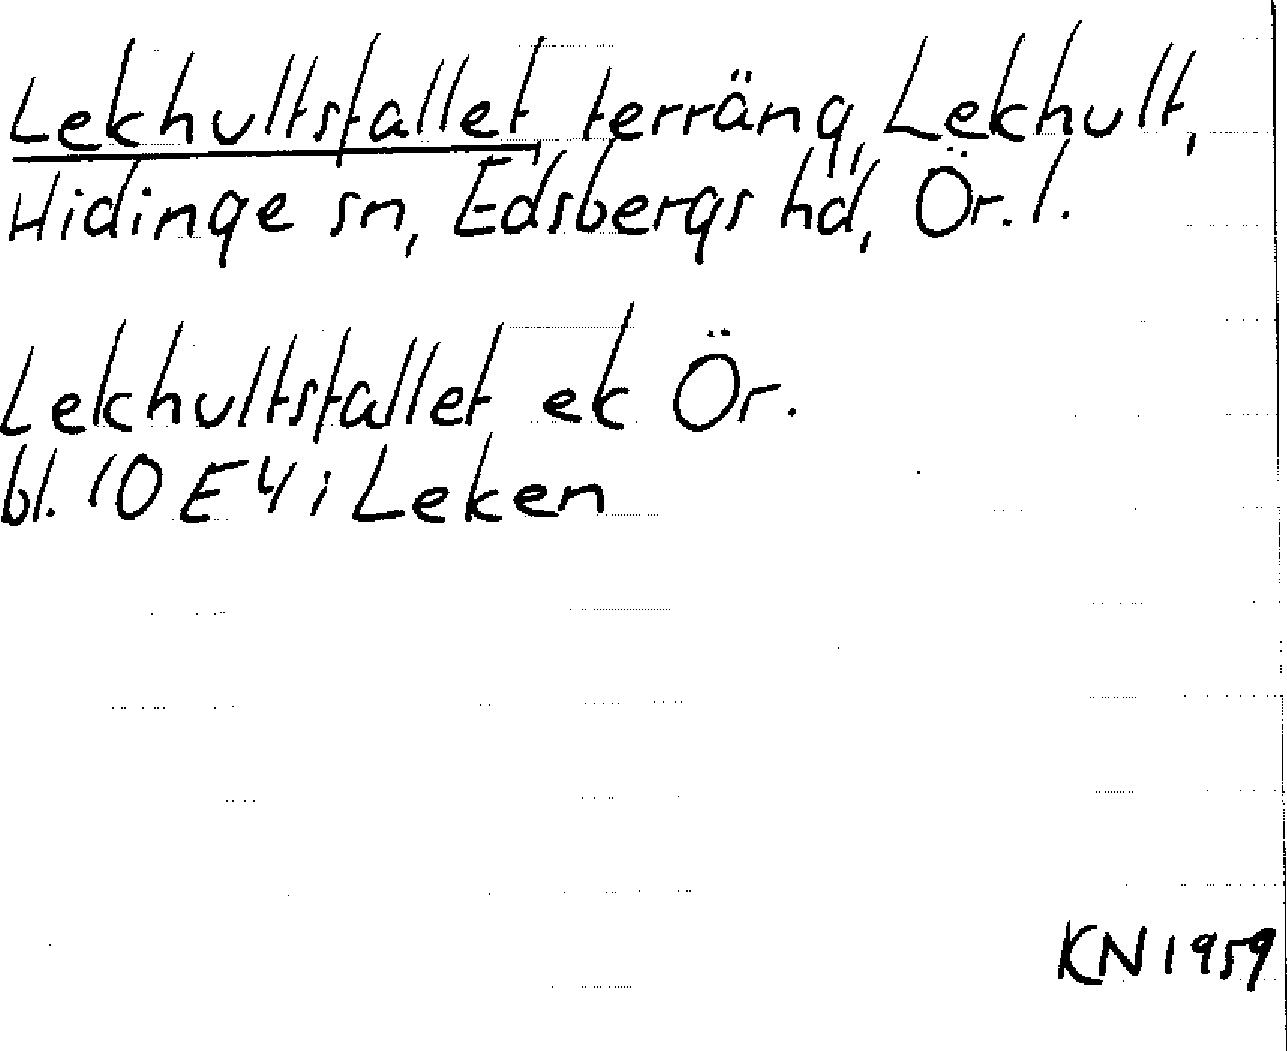 Lekhultsfallet, terräng, Lekhult,
Hidinge sn, Edsbergs hd, Ör. l.
Lekhultsfallet ek Ör.
bl. 10 E 4 i Leken
KN 1959